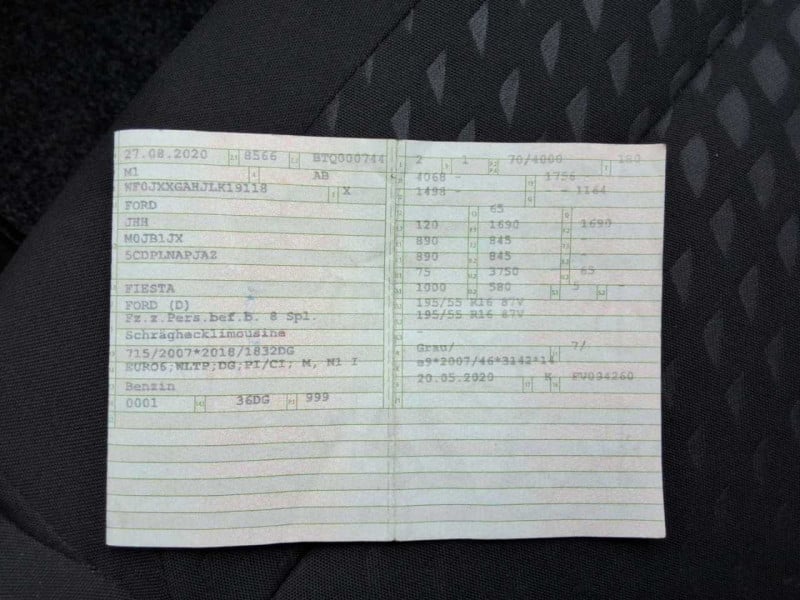 27.08.2020 8566 BTQ000744
M1 AB
WF0JXXGAHJLK19118 X
FORD
JHH
M0JB1JX
5CDPLNAPJAZ
FIESTA
FORD (D)
Fz.z.Pers.bef.b. 8 Spl.
Schräghecklimousine
715/2007*2018/1832DG
EURO6;WLTP;DG;PI/CI; M, N1 I
Benzin
0001 36DG 999
2 1 70/4000 180
4068 - 1756 -
1498 - - 1164
65
120 1690 1690
890 845 -
890 845 -
75 3750 65
1000 580 5 -
195/55 R16 87V
195/55 R16 87V
-
Grau/ 7/
e9*2007/46*3142*14
20.05.2020 K